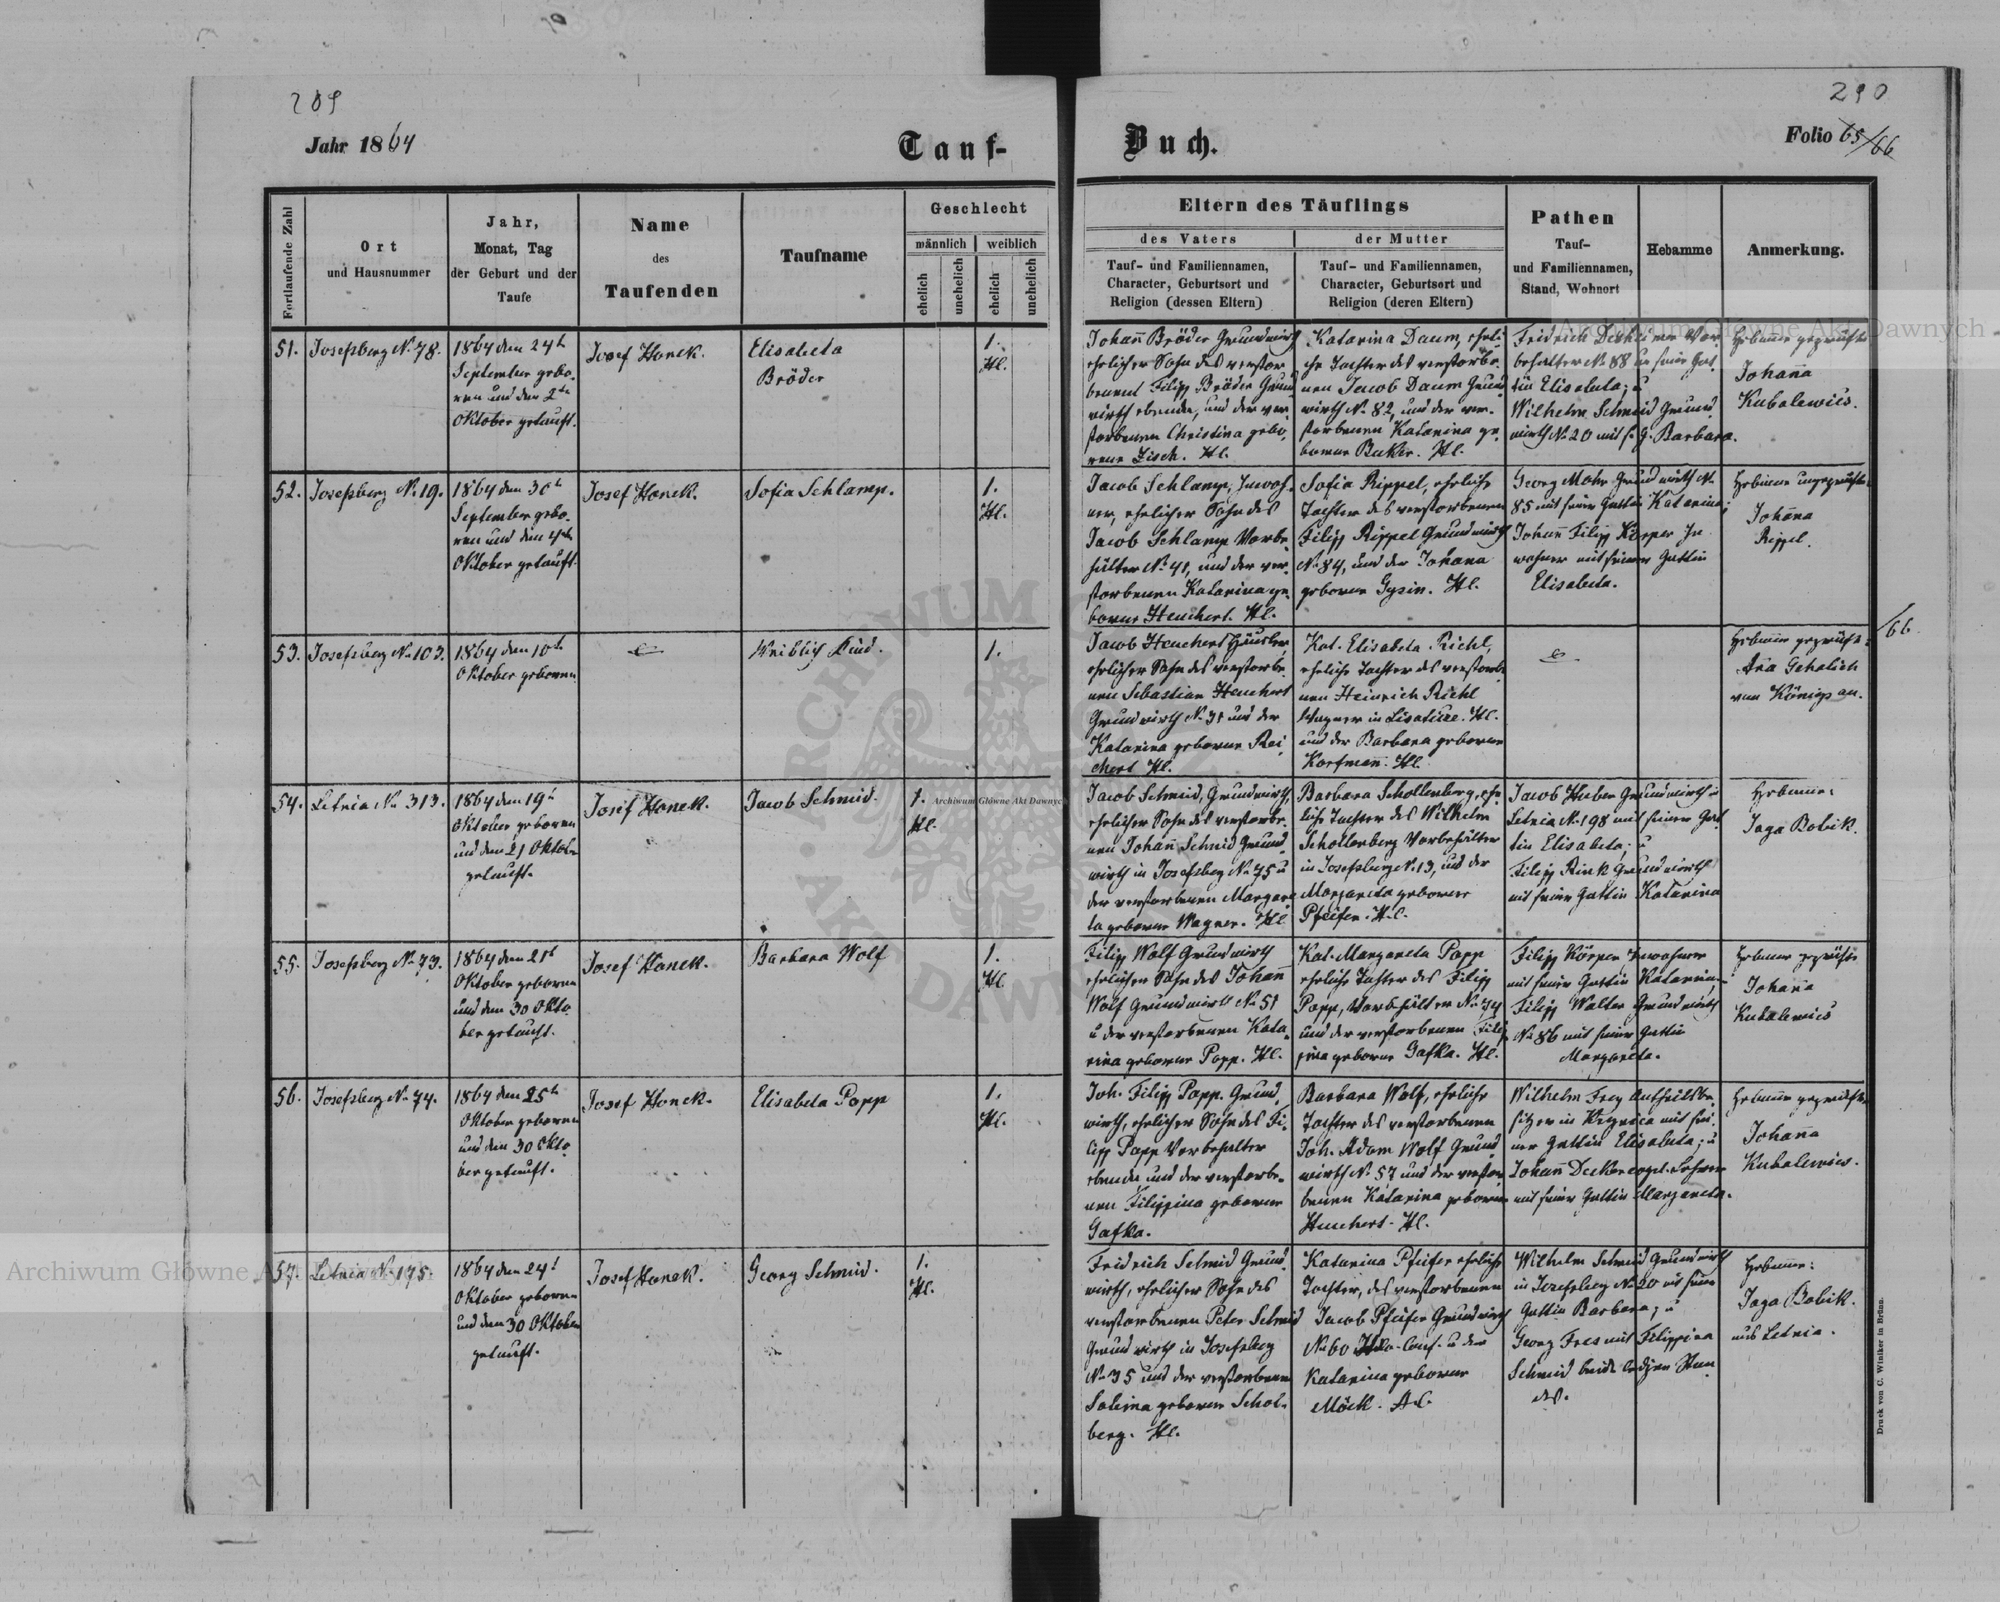 209
290
Jahr 1864
Tauf-
Buch.
Folio 65/66
Fortlaufende Zahl
Ort
und Hausnummer
Jahr,
Monat, Tag
der Geburt und der
Taufe
Name
des
Taufenden
Taufname
Geschlecht
männlich
weiblich
ehelich
unehelich
ehelich
unehelich
Eltern des Täuflings
des Vaters
der Mutter
Tauf- und Familiennamen,
Character, Geburtsort und
Religion (dessen Eltern)
Tauf- und Familiennamen,
Character, Geburtsort und
Religion (deren Eltern)
Pathen
Tauf-
und Familiennamen,
Stand, Wohnort
Hebamme
Anmerkung.
51.
Josefsberg N. 78.
1864 den 24t
September gebo-
ren und den 2te
Oktober getauft.
Josef Honek.
Elisabeta
Bröder
1.
Hl.
Johann Bröder Grundwirth
ehelicher Sohn des verstor
benent Filipp Bröder Grund
wirth ebenda, und der ver
storbenen Christina gebo,
rene Zisch. Hl.
Katarina Daum, eheli
che Tochter des verstorbe
nen Jacob Daum Grund
wirth N. 82, und der ver-
storbenen Katarina ge
borene Buker. Hl.
Fridrich Deckimer Vor
behalter N. 88 u seine Gat
tin Elisabeta; u
Wilhelm Schmid Grund
wirth N. 20 mit s. G. Barbara.
Hebamme geprüfte
Johanna
Kubalewics.
52.
Josefsberg N. 19.
1864 den 30t
September gebo-
ren und den 4ten
Oktober getauft.
Josef Honek.
Sofia Schlamp.
1.
Hl.
Jacob Schlamp, Inwoh-
ner, ehelicher Sohn des
Jacob Schlamp Vorbe-
hälter N. 41, und der ver-
storbenen Katarina ge-
borne Heuchert. Hl.
Sofia Rippel, eheliche
Tochter des verstorbenen
Filipp Rippel Grundwirth
N. 84, und der Johana
geborne Gysin. Hl.
Georg Mohr Grundwirth N.
85 mit seiner Gattin Katarina;
Johann Filipp Körper In
wohner mit seiner Gattin
Elisabeta.
Hebamme ungeprüfte
Johana
Rippel.
53.
Josefsberg N. 103.
1864 den 10t
Oktober geboren
Weiblich Kind.
1.
Jacob Heuchert Häusler,
ehelicher Sohn des verstorbe
nen Sebastian Heuchert
Grundwirth N. 31 und der
Katarina geborne Rei
chert Hl.
Kat. Elisabeta Richl,
eheliche Tochter des verstorbe
nen Heinrich Richl
Wagner in Hl.
und der Barbara geborne
Korfman. Hl.
Hebamme geprüft:
von Königsau.
66
54.
Letnia N. 313.
1864 den 19t
Oktober geboren
und den 21 Oktober
getauft.
Josef Honek.
Jacob Schmid.
1.
Hl.
Jacob Schmid, Grundwirth,
ehelicher Sohn des verstorbe
nen Johan Schmid Grund
wirth in Josefsberg N. 75 u
der verstorbenen Margare
ta geborne Wagner. Hl
Barbara Schollenberg, ehe
liche Tochter des Wilhelm
Schollenberg Vorbehälter
in Josefsberg N. 13, und der
Margareta geborene
Pfeifer. H.C.
Jacob Huber Grundwirth in
Letnia N. 198 mit seiner Gat
tin Elisabeta; u
Filipp Rink Grundwirth
mit seiner Gattin Katarina
Hebamme:
Jaga Bobik.
55.
Josefsberg N. 73.
1864 den 21t
Oktober geboren
und den 30 Okto
ber getauft.
Josef Honek.
Barbara Wolf
1.
Hl
Filipp Wolf Grundwirth
ehelicher Sohn des Johann
Wolf Grundwirth N. 51
u der verstorbenen Kata
rina geborne Popp. Hl.
Kat. Margareta Popp
eheliche Tochter des Filipp
Popp, Vorbehälter N. 74
und der verstorbenen Filip
pina geborne Gafka. Hl.
Filipp Körper Inwohner
mit seiner Gattin Katarina,
Filipp Walter Grundwirth
N. 86 mit seiner Gattin
Margareta.
Hebamme geprüfte
Johanna
Kubalewics
56.
Josefsberg N. 74.
1864 den 25t
Oktober geboren
und den 30 Okto
ber getauft.
Josef Honek.
Elisabeta Popp
1.
Hl.
Joh. Filipp Popp. Grund,
wirth, ehelicher Sohn des Fi
lipp Popp Vorbehalter
ebenda und der verstorbe-
nen Filippina geborne
Gafka.
Barbara Wolf, eheliche
Tochter des verstorbenen
Joh. Adam Wolf Grund
wirth N. 57 und der verstor
benen Katarina geborne
Heuchert. Hl.
Wilhelm Frey Antheilsbe-
sitzer in mit sei
ner Gattin Elisabeta; u
Johann Decker
mit seiner Gattin Margareta.
Hebamme geprüfte
Johanna
Kubalewics.
57.
Letnia N. 175.
1864 den 24t
Oktober geboren
und den 30 Oktober
getauft.
Josef Honek.
Georg Schmid.
1.
Hl.
Fridrich Schmid Grund
wirth, ehelicher Sohn des
verstorbenen Peter Schmid
Grundwirth in Josefsberg
N. 35 und der verstorbenen
Salima geborne Schol-
berg. Hl.
Katarina Pfeifer eheliche
Tochter, des verstorbenen
Jacob Pfeifer Grundwirth
N. 60 Conf. u der
Katarina geborne
Möck. A.C.
Wilhelm Schmid Grundwirth
in Josefsberg N. 20 mit seiner
Gattin Barbara; u
Georg Fres mit Filippina
Schmid beide ledigen Stan
des.
Hebamme:
Jaga Bobik.
aus Letnia.
Druck von C. Winiker in Brünn.
Archiwum Główne Akt Dawnych
Archiwum Główne Akt Dawnych
Archiwum Główne Akt Dawnych
ARCHIWUM
AKT DAWNYCH